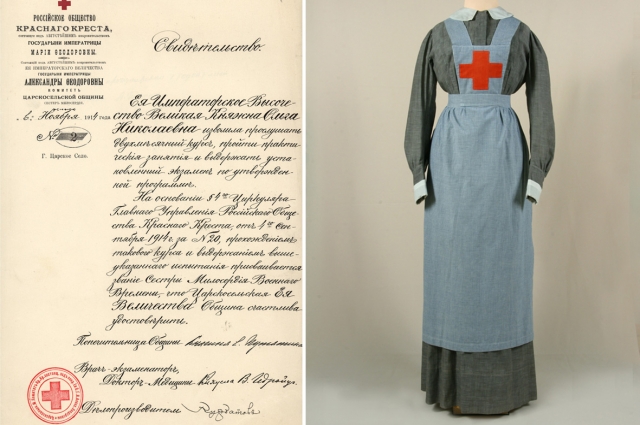 РОССІЙСКОЕ ОБЩЕСТВО
КРАСНАГО КРЕСТА,
ГОСУДАРЫНИ ИМПЕРАТРИЦЫ
МАРІИ ѲЕОДОРОВНЫ.
ЕЯ ИМПЕРАТОРСКАГО ВЕЛИЧЕСТВА
ГОСУДАРЫНИ ИМПЕРАТРИЦЫ
АЛЕКСАНДРЫ ѲЕОДОРОВНЫ
КОМИТЕТЪ
ЦАРСКОСЕЛЬСКОЙ ОБЩИНЫ
СЕСТЕРЪ МИЛОСЕРДІЯ
6. Ноября 1914 года
№ 2
Г. Царское Село.
Свидѣтельство.
Ея Императорское Высоче-
ство Великая Княжна Ольга
Николаевна изволила прослушать
двухмѣсячный курсъ, пройти практи-
ческія занятія и выдержать уста-
новленный экзаменъ по утвержден-
ной программѣ.
На основаніи §4го Циркуляра
Главнаго Управленія Россійскаго Обще-
ства Краснаго Креста, отъ 4го Сен-
тября 1914 г. за №20, прохожденіемъ
таковаго курса и выдержаніемъ выше-
указаннаго испытанія присваивается
званіе Сестры Милосердія Военнаго
Времени, что Царскосельская Ея
Величества Община счастлива
удостовѣрить.
Попечительница Общины
Врачъ-экзаменаторъ,
Докторъ-Медицины Княжна В. Гедройцъ
Дѣлопроизводитель